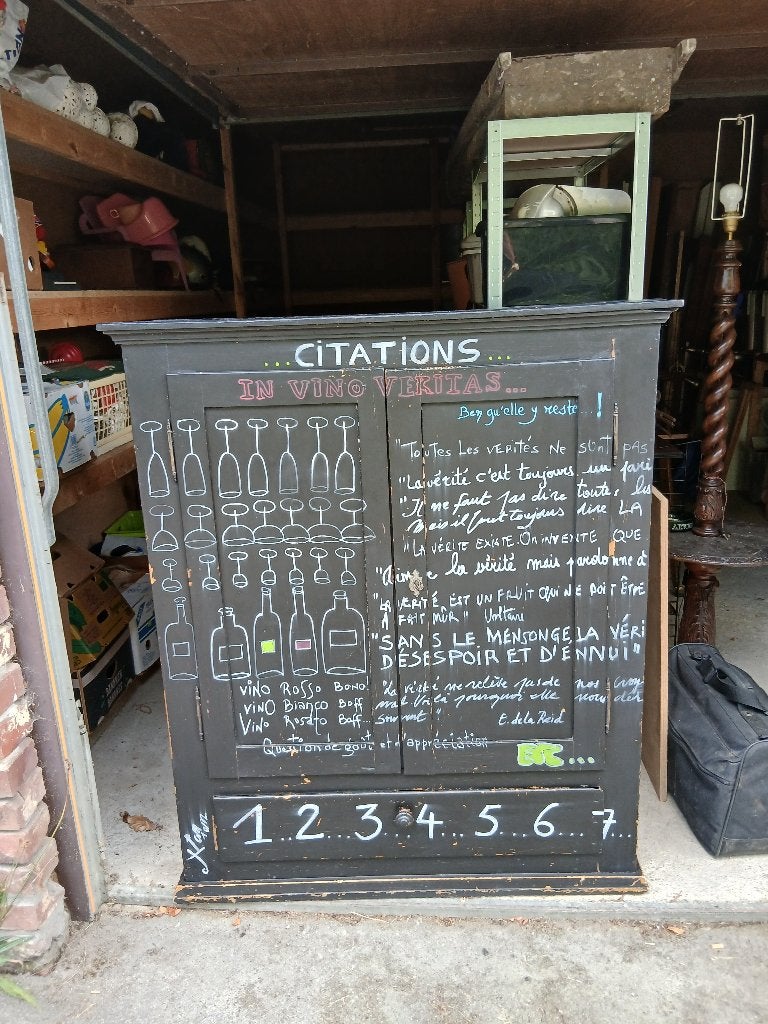 ...CiTATIONS...
IN VINO VERITAS...
Ben qu'elle y reste...!
"Toutes Les vérités ne sont pas
"La vérité c'est toujours un pari
"Il ne faut pas dire toute, les
mais il faut toujours dire LA
"LA VÉRITÉ EXISTE. On iNVENTE QUE
la vérité mais pardonne à
"LA VÉRITÉ EST UN FRUIT QUI NE DOIT ÊTRE
MÛR" Voltaire
"SANS LE MENSONGE LA VÉRI
DESESPOIR ET D'ENNUI"
"La vérité ne relève pas de nos
voilà pourquoi elle nous
E. de la Reid
ViNO ROSSO BONO!
ViNO Bianco Boff
Vino Rosato Baff...
Question de goût et d'appréciation
ETC...
1...2...3...4...5...6...7...